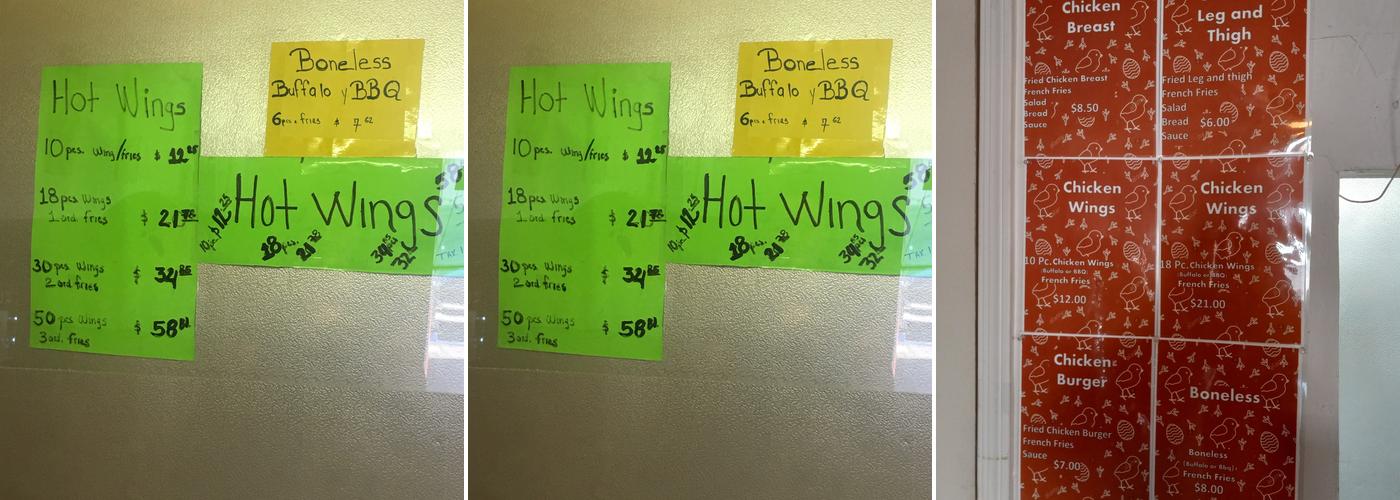 Boneless
Buffalo y BBQ
6pcs. fries $ 7 62
Hot Wings
10 pcs. wing/fries $ 12 25
18 pcs wings
1 ord. fries $ 21 78
30 pcs wings
2 ord fries $ 34
50 pcs wings
3 ord. fries $ 58
Hot Wings
18 pcs.
Boneless
Buffalo y BBQ
6pcs. fries $ 7 62
Hot Wings
10 pcs. wing/fries $ 12 25
18 pcs wings
1 ord. fries $ 21 78
30 pcs wings
2 ord fries $ 34
50 pcs wings
3 ord. fries $ 58
Hot Wings
18 pcs.
Chicken
Breast
Fried Chicken Breast
French Fries
Salad
Bread $8.50
Sauce
Leg and
Thigh
Fried Leg and thigh
French Fries
Salad
Bread $6.00
Sauce
Chicken
Wings
10 Pc.Chicken Wings
(Buffalo or BBQ)
French Fries
$12.00
Chicken
Wings
18 Pc.Chicken Wings
(Buffalo or BBQ)
French Fries
$21.00
Chicken
Burger
Fried Chicken Burger
French Fries
Sauce
$7.00
Boneless
Boneless
(Buffalo or Bbq)
French Fries
$8.00